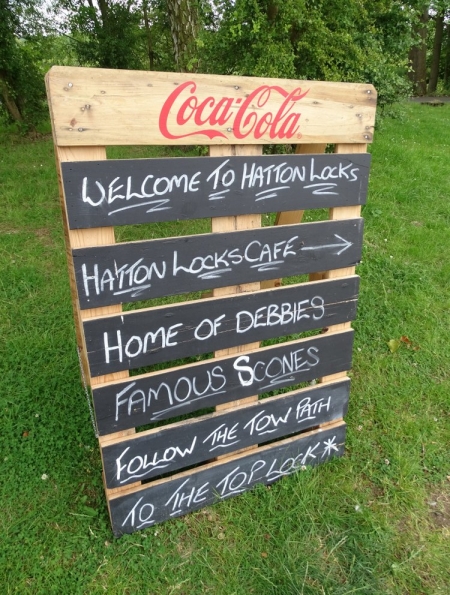 Coca-Cola
WELCOME TO HATTON LOCKS
HATTON LOCKS CAFE →
HOME OF DEBBIES
FAMOUS SCONES
FOLLOW THE TOW PATH
TO THE TOP LOCK *